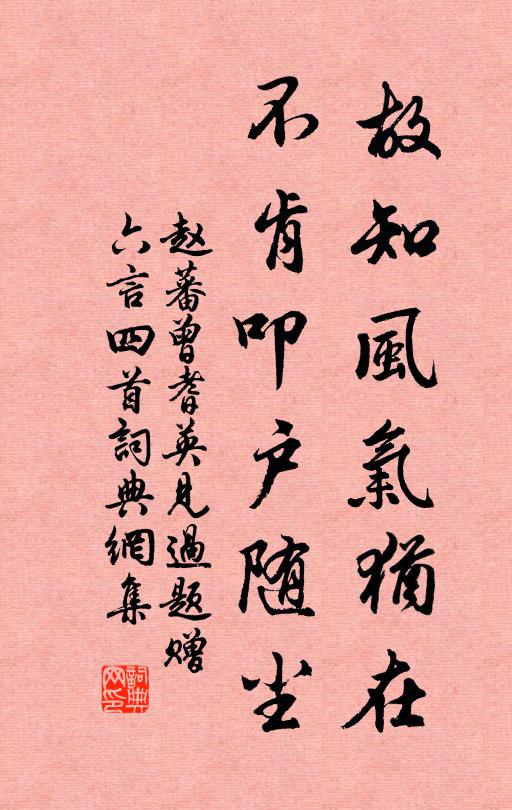 故知風氣猶在
不肯叩户随尘
赵蕃曾耆英見過題赠
六言四首詞典網集
詞典网印